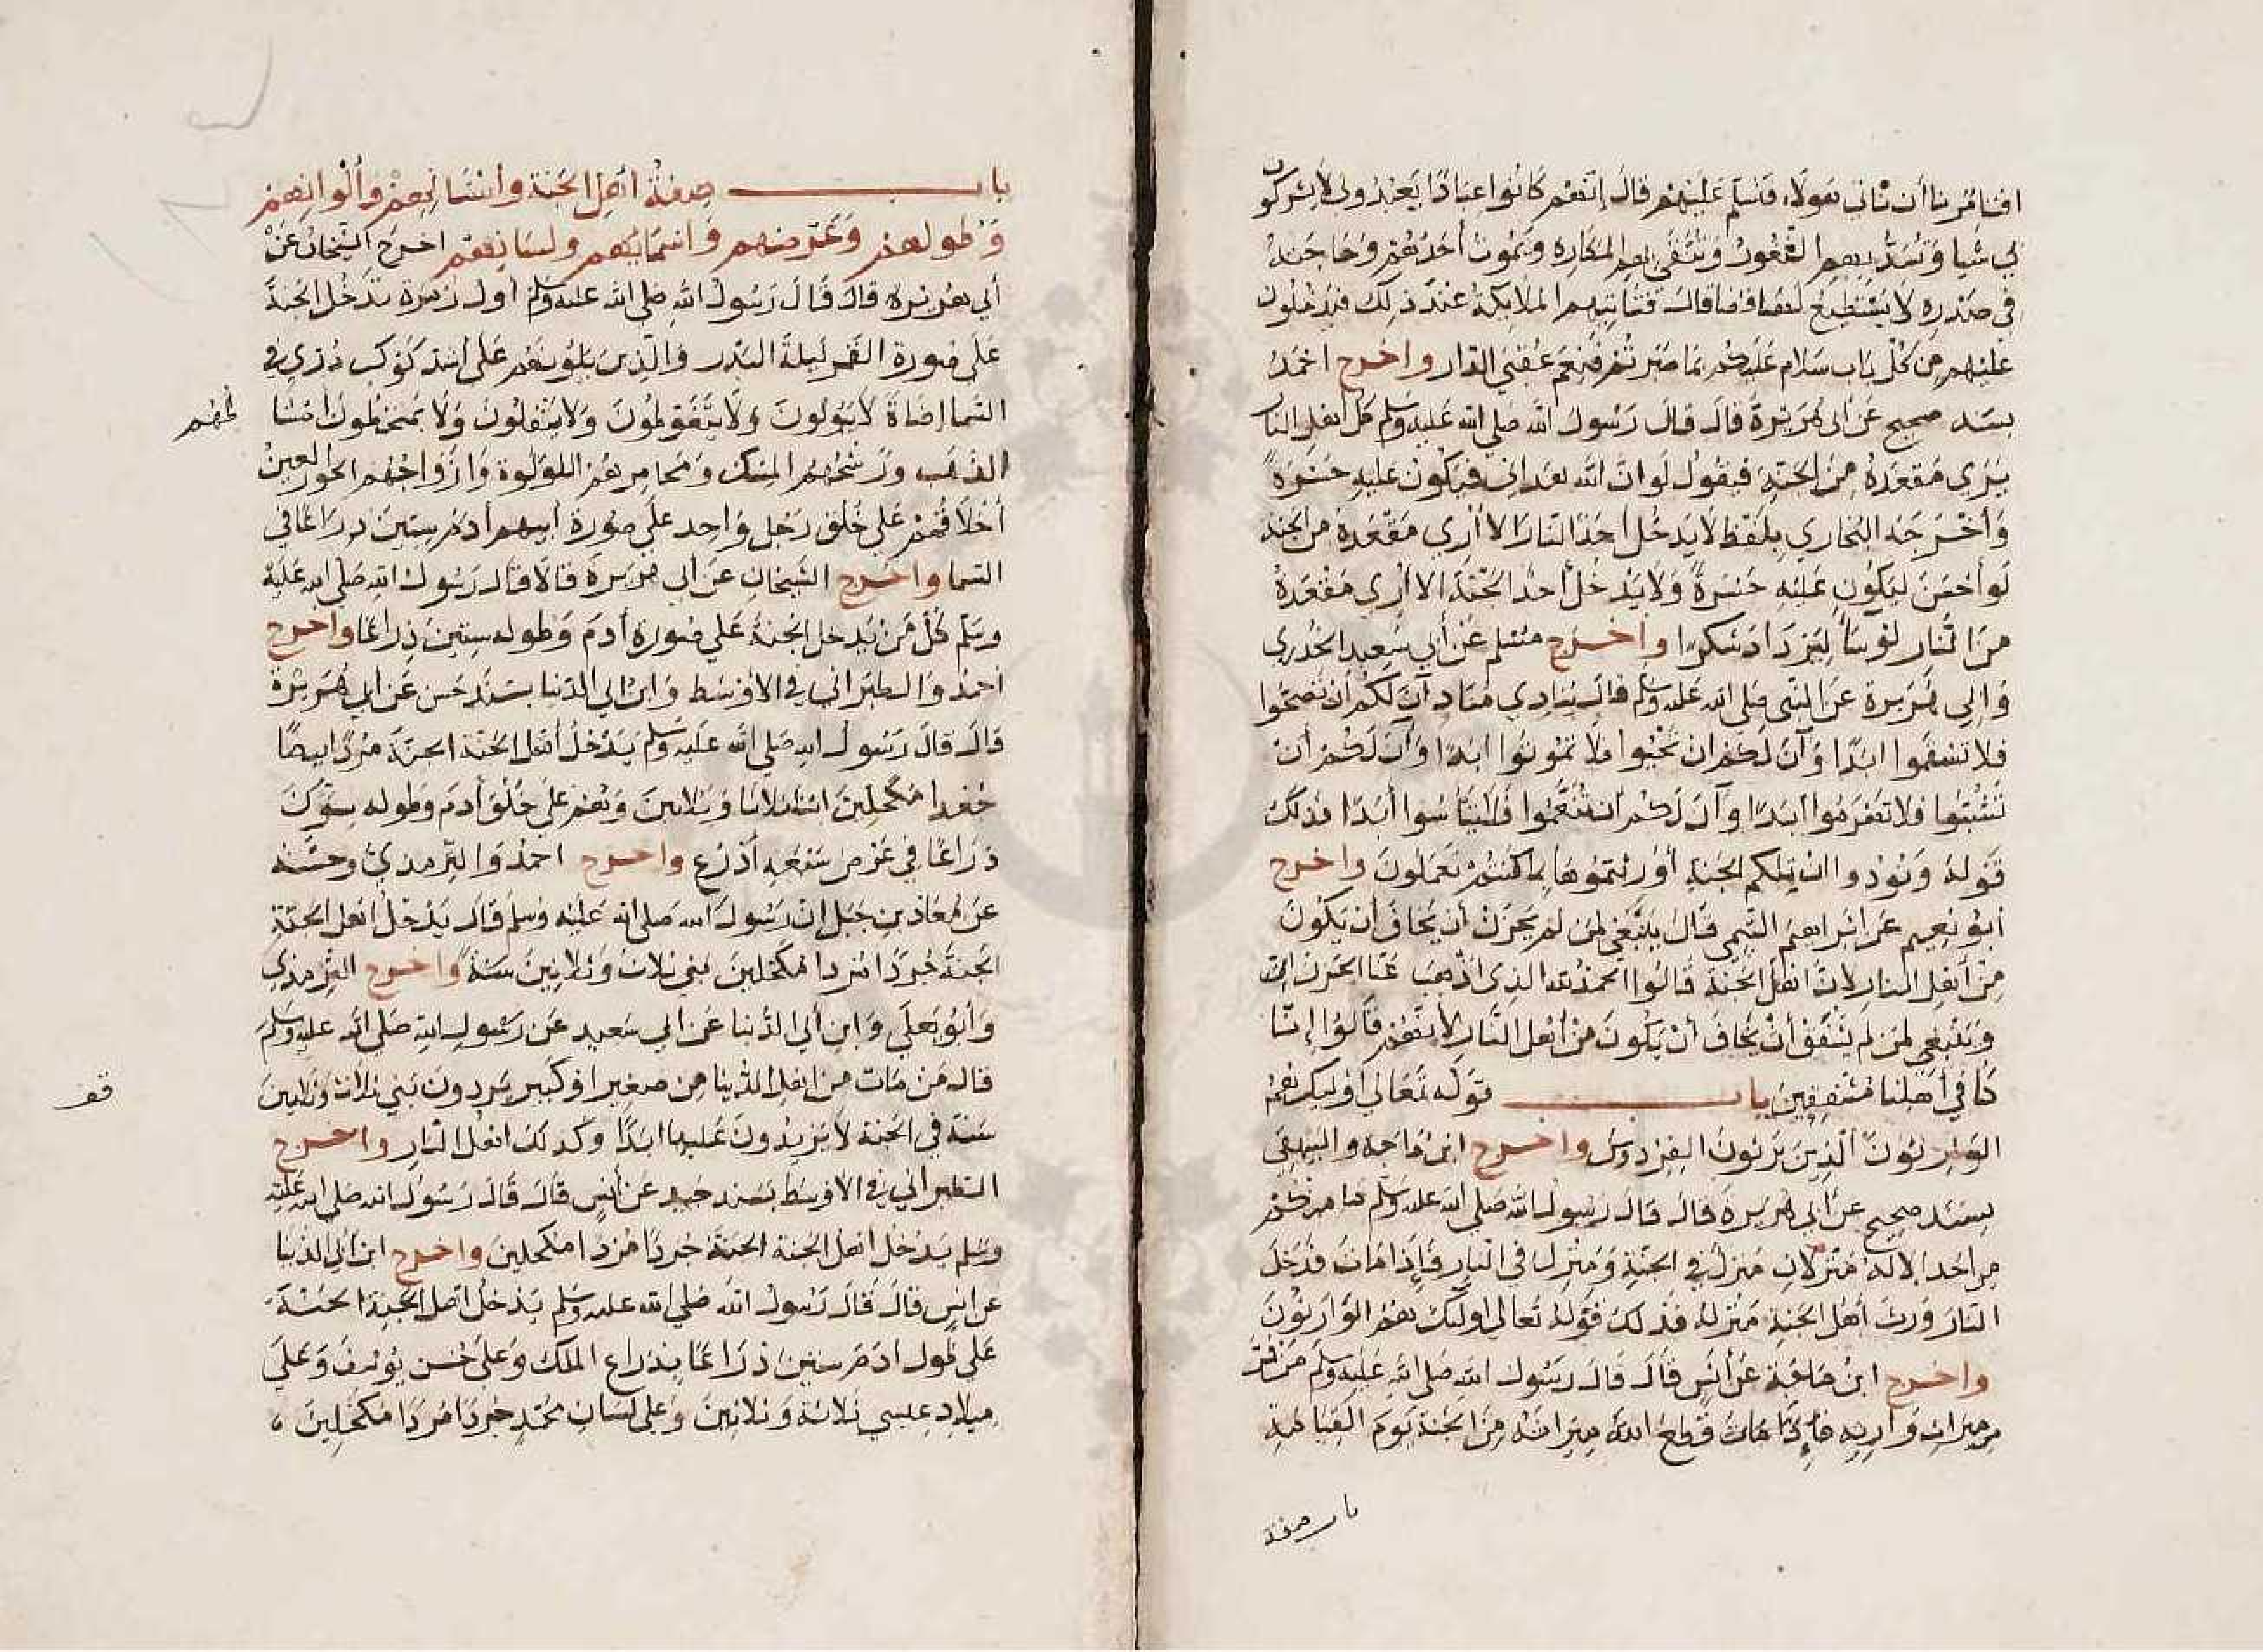 افتامرنا أن ناتي هولاء فنسلم عليهم قال إنهم كانوا عبادا يعبدوني لا يشركون
بي شيا وتسد بهم الثغور وتتقى بهم المكاره ويموت أحدهم وحاجته
في صدره لا يستطيع لها قضا قال فتاتيهم الملايكة عند ذلك فيدخلون
عليهم من كل باب سلام عليكم بما صبرتم فنعم عقبي الدار واخرج احمد
بسند صحيح عن ابي هريرة قال قال رسول الله صلي الله عليه وسلم كل اهل النار
يري مقعده من الجنة فيقول لو ان الله هداني فيكون عليه حسرة
وأخرجه البخاري بلفظ لا يدخل احد النار الا أري مقعده من الجنة
لو أحسن ليكون عليه حسرة ولا يدخل أحد الجنة الا أري مقعده
من النار لو سا ليزداد شكرا واخرج مسلم عن أبي سعيد الخدري
وابي هريرة عن النبي صلي الله عليه وسلم قال ينادي مناد آن لكم أن تصحوا
فلا تسقموا ابدا وآن لكم ان تحيوا فلا تموتوا ابدا وآن لكم أن
تشبوا فلا تهرموا ابدا وآن لكم ان تنعموا فلا تياسوا أبدا فذلك
قوله ونودوا ان تلكم الجنة أورثتموها بما كنتم تعملون واخرج
أبو نعيم عن ابراهيم التيمي قال ينبغي لمن لم يحزن أن يخاف أن يكون
من أهل النار لان اهل الجنة قالوا الحمد لله الذي اذهب عنا الحزن
وينبغي لمن لم يشفق أن يخاف أن يكون من اهل النار لأنهم قالوا إنا
كنا في أهلنا مشفقين باب قوله تعالي اوليك هم
الوارثون الذين يرثون الفردوس واخرج ابن ماجه والبيهقي
بسند صحيح عن ابي هريرة قال قال رسول الله صلي الله عليه وسلم ما منكم
من احد إلا له منزلان منزل في الجنة ومنزل في النار فإذا مات فدخل
النار ورث اهل الجنة منزله فذلك قوله تعالي اوليك هم الوارثون
واخرج ابن ماجة عن أنس قال قال رسول الله صلي الله عليه وسلم من فر
من ميراث وارثه قطع الله ميراثه من الجنة يوم القيامة
باب صفة
باب صفة أهل الجنة وأسنانهم وألوانهم
وطولهم وعرضهم واسمايهم ولسانهم اخرج الشيخان عن
أبي هريرة قال قال رسول الله صلي الله عليه وسلم أول زمرة تدخل الجنة
علي صورة القمر ليلة البدر والذين يلونهم علي أشد كوكب دري في
السما اضاة لا يبولون ولا يتغوطون ولا يتفلون ولا يمتخطون أمشا
طهم
الذهب ورشحهم المسك ومجامرهم اللولوة وازواجهم الحور العين
أخلاقهم علي خلق رجل واحد علي صورة أبيهم أدم ستين ذراعا في
السما واخرج الشيخان عن أبي هريرة قالا قال رسول الله صلي الله عليه
وسلم كل من يدخل الجنة علي صورة أدم وطوله ستين ذراعا واخرج
أحمد والطبراني في الاوسط وابن ابي الدنيا بسند حسن عن ابي هريرة
قال قال رسول الله صلي الله عليه وسلم يدخل أهل الجنة الجنة مردا بيضا
جعدا مكحلين ابنا ثلاثا وثلاثين وهم علي خلق أدم وطوله ستون
ذراعا في عرض سبعه أذرع واخرج احمد والترمذي وحسنه
عن معاذ بن جبل ان رسول الله صلي الله عليه وسلم قال يدخل اهل الجنة
الجنة جردا مردا مكحلين بني ثلاث وثلاثين سنة واخرج الترمذي
وأبو يعلي وابن أبي الدنيا عن ابي سعيد عن رسول الله صلي الله عليه وسلم
قال من مات من اهل الدنيا من صغير او كبير يردون بني ثلاث وثلاثين
قف
سنة في الجنة لا يزيدون عليها ابدا وكذلك اهل النار واخرج
الطبراني في الاوسط بسند جيد عن أنس قال قال رسول الله صلي الله عليه
وسلم يدخل اهل الجنة الجنة جردا مردا مكحلين واخرج ابن ابي الدنيا
عن انس قال قال رسول الله صلي الله عليه وسلم يدخل اهل الجنة الجنة
علي طول ادم ستين ذراعا بذراع الملك وعلي حسن يوسف وعلي
ميلاد عيسي ثلاثة وثلاثين وعلي لسان محمد جردا مردا مكحلين ه